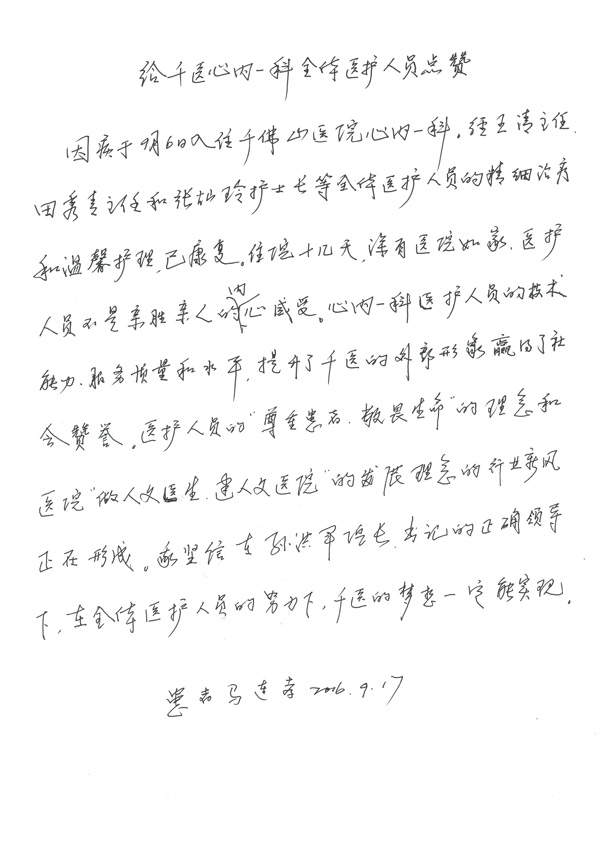 给千医心内一科全体医护人员点赞
因病于9月6日入住千佛山医院心内一科。经王清主任、
田秀青主任和张灿玲护士长等全体医护人员的精细治疗
和温馨护理,已康复。住院十几天,深有医院如家、医护
人员不是亲胜亲人的内心感受。心内一科医护人员的技术
能力、服务质量和水平,提升了千医的外部形象赢得了社
会赞誉。医护人员的“尊重患者、敬畏生命”的理念和
医院“做人文医生、建人文医院”的发展理念的行业新风
正在形成。我坚信在孙洪军院长、书记的正确领导
下,在全体医护人员的努力下,千医的梦想一定能实现。
患者马连孝 2016.9.17